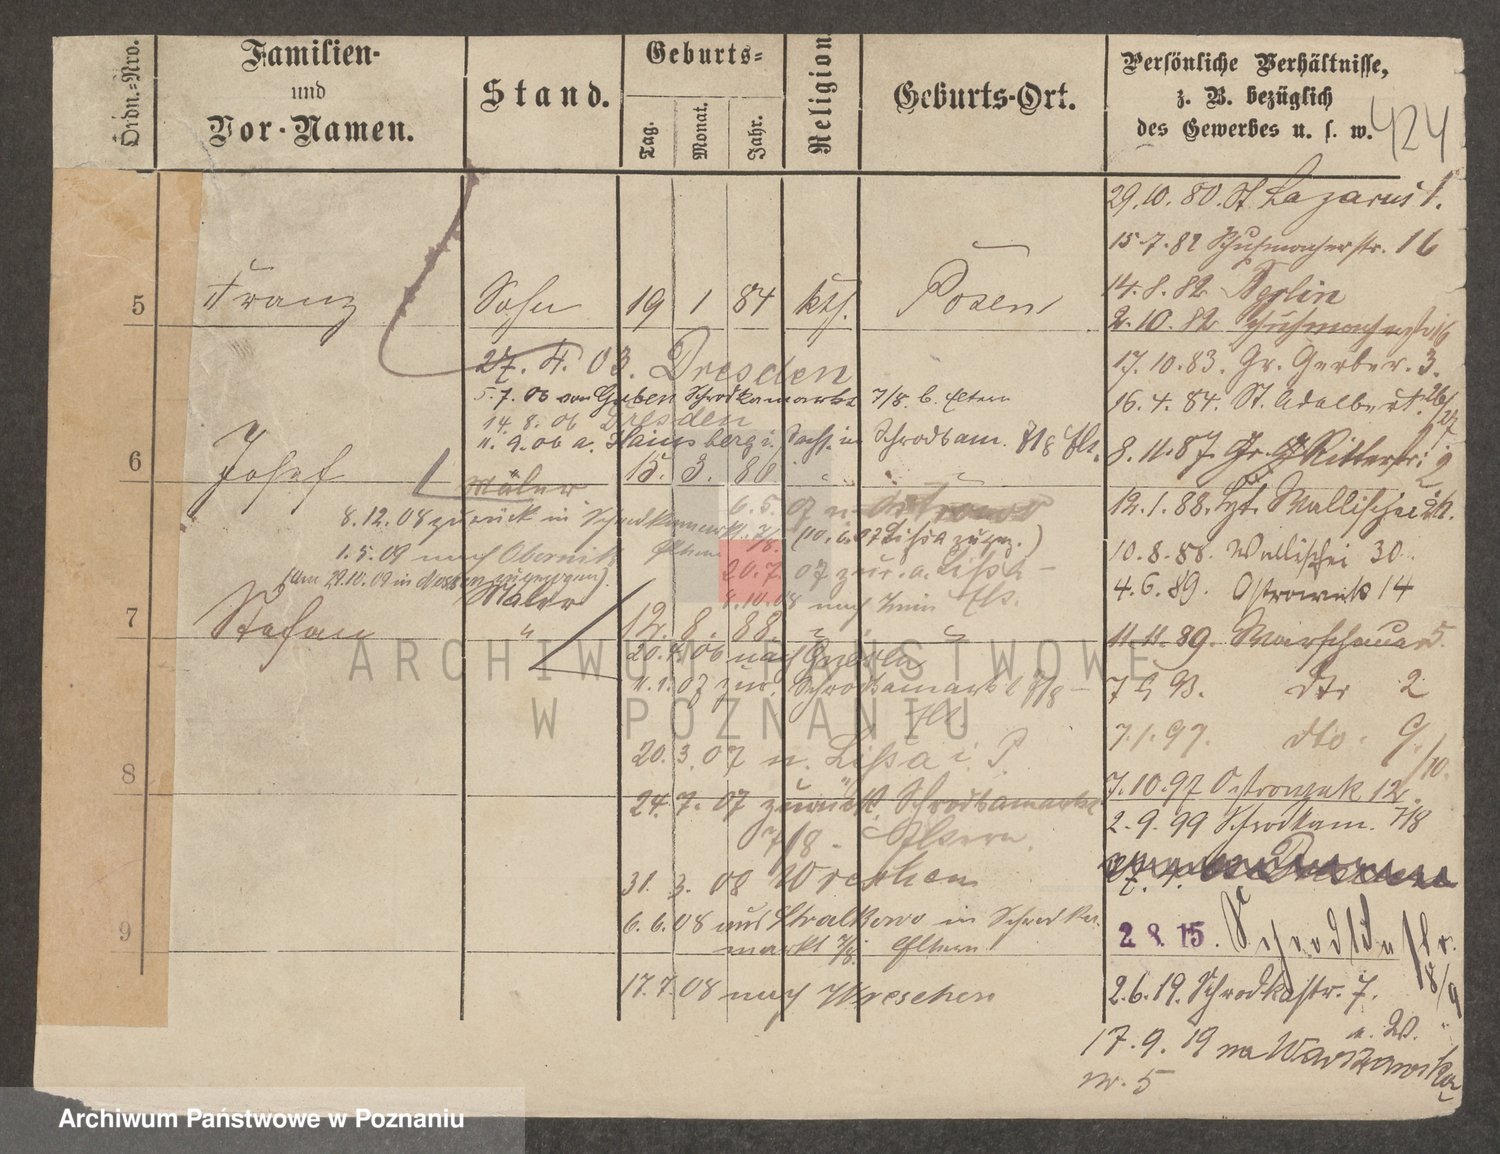 Ordn.-Nro.
Familien-
und
Vor-Namen.
Stand.
Geburts-
Tag.
Monat.
Jahr.
Religion
Geburts-Ort.
Persönliche Verhältnisse,
z. B. bezüglich
des Gewerbes u. s. w.
424
29.10.80. St Lazarus 1.
15.7.82 Schuhmacherstr. 16
14.8.82 Berlin
2.10.82 Schuhmacherstr 16
17.10.83. Gr. Gerber. 3.
16.4.84. St. Adalbert
8.11.87. Gr. Ritterstr. 2
12.1.88. Wallischei
10.8.88. Wallischei 30.
4.6.89. Ostrowek 14
11.11.89. Warschauer 5.
dto 2
7.1.97. dto. 9/10.
7.10.97 Ostrowek 12.
2.9.99 Schrodkam. 7/8
2 8. 15. Schrodkastr.
2.6.19. Schrodkastr. 7.
17.9.19 na Warszawska
nr. 5
5 Franz Sohn 19 1 84 kth. Posen
27.4.03. Dresden
5.7.06 von Guben Schrodkamarkt 7/8. b. Eltern
14.8.06 Dresden
11.9.06 a. Hainsberg i. Sachs. in Schrodkam. 7/8 Elt.
6 Josef Maler 15. 3. 86 "
6.5.07 n. Ostrowo
8.12.08 zurück in Schrodkamarkt. 7/8. Eltern
(10.6.07 Lissa zugez.)
1.5.09 nach Obornik
20.7.07 zur. a. Lissa -
(Am 29.10.09 in zugezogen).
8.10.08 nach Znin
Maler
7 Stefan " 12. 8. 88. " "
20.7.06 nach
11.1.07 zur. Schrodkamarkt 7/8 -
Elt.
20.3.07 n. Lissa i. P.
8
24.7.07 zurück. Schrodkamarkt
7/8 - Eltern.
31. 3. 08 Wreschen
9
6.6.08 aus Stralkowo in Schrodka-
markt 7/8. Eltern
17.7.08 nach Wreschen
ARCHIWUM PAŃSTWOWE
W POZNANIU
Archiwum Państwowe w Poznaniu